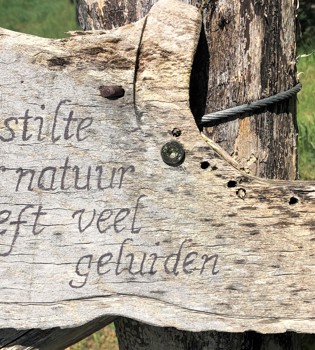 stilte
natuur
eft veel
geluiden